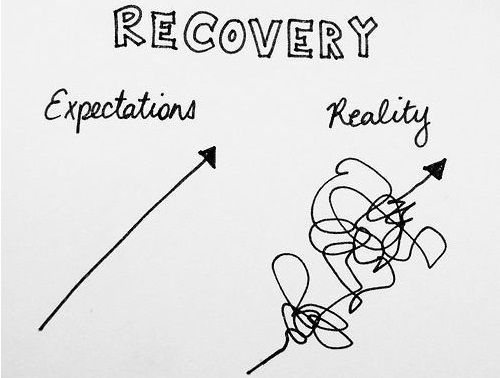 RECOVERY
Expectations
Reality